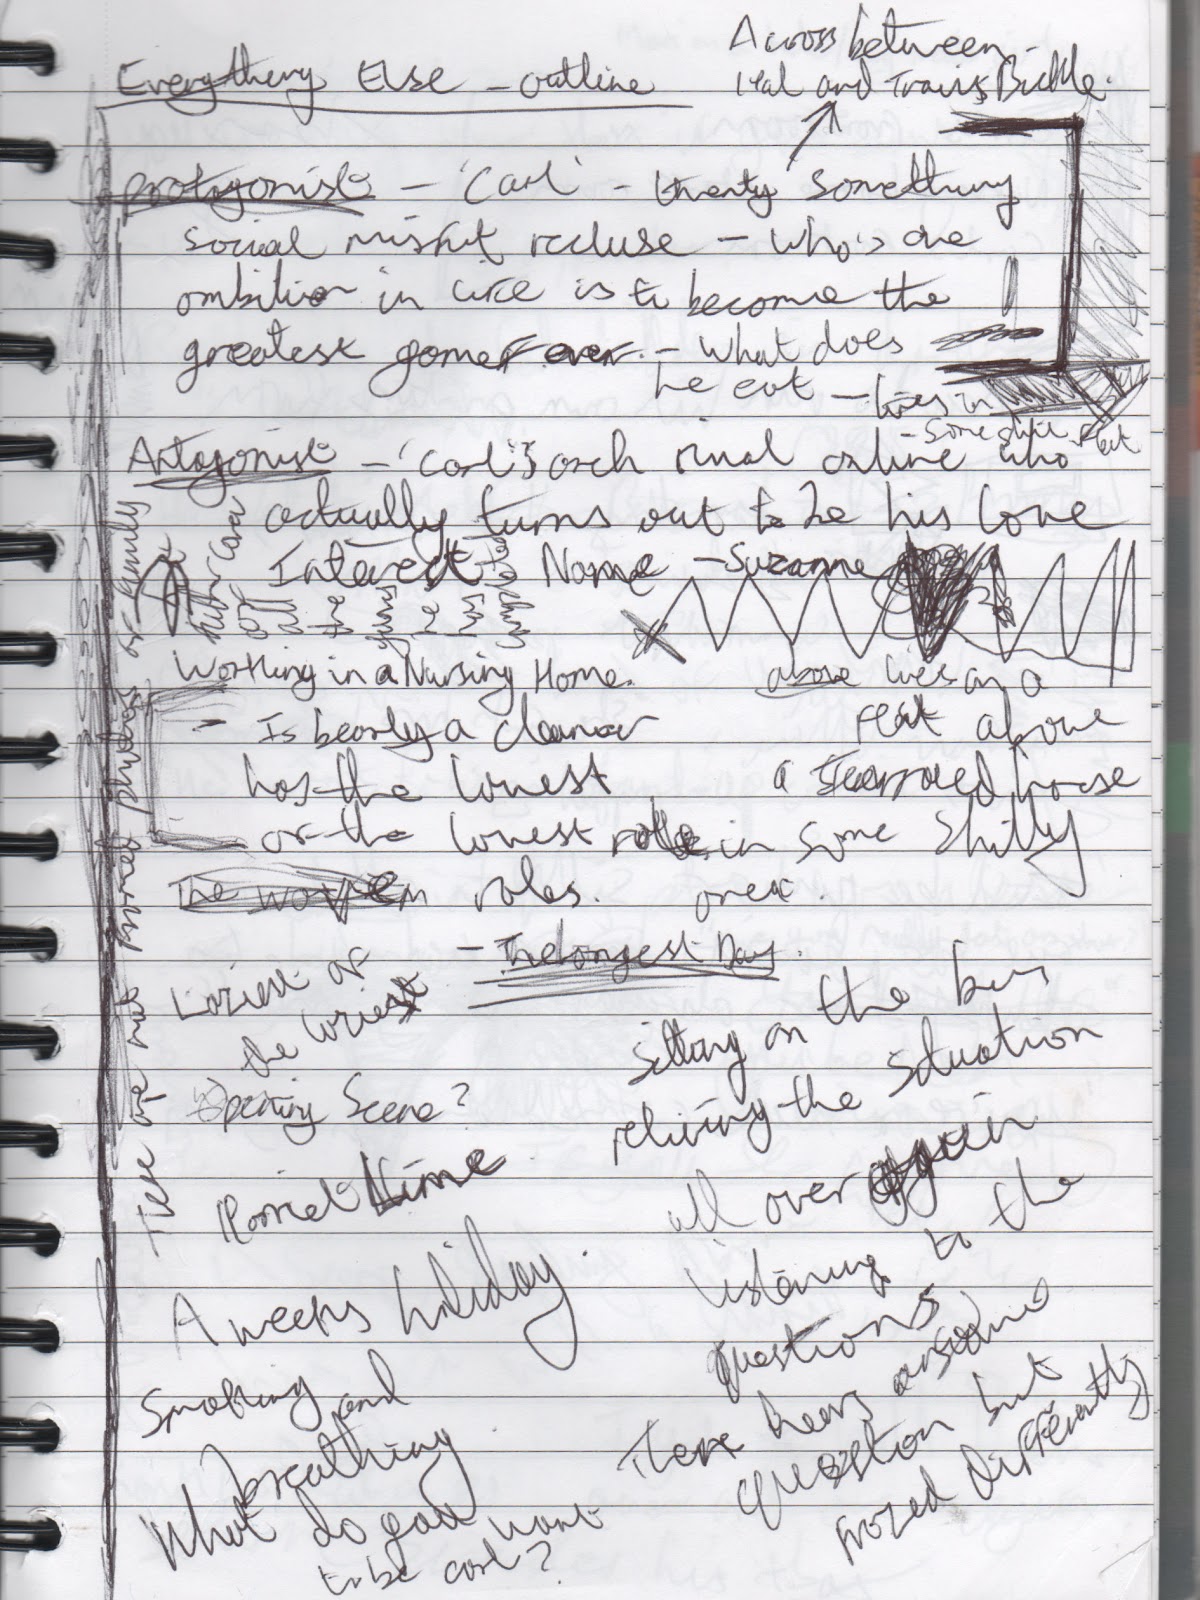 Everything Else - outline
Across between
Hal and Travis Bickle.
protagonist - 'Carl' - twenty something
social misfit recluse - who's one
ambition in life is to become the
greatest gamer ever. - What does
he eat - lives in
- some shit flat
Antagonist - 'Carl's arch rival online who
actually turns out to be his love
Interest Name - Suzanne
Working in a Nursing Home.
- Is bearly a cleaner
has the lowest
or the lowest
roles.
above lives in a
flat above
a terraced house
in some Shitty
area.
- The Longest Day.
Laziest or
the laziest
Opening Scene?
A weeks holiday.
Smoking and
breathing
What do you want
to be carl?
sitting on the bus
reliving the situation
all over again
listening to the
questions
question but
differently
These are not
all
the
years
he
has